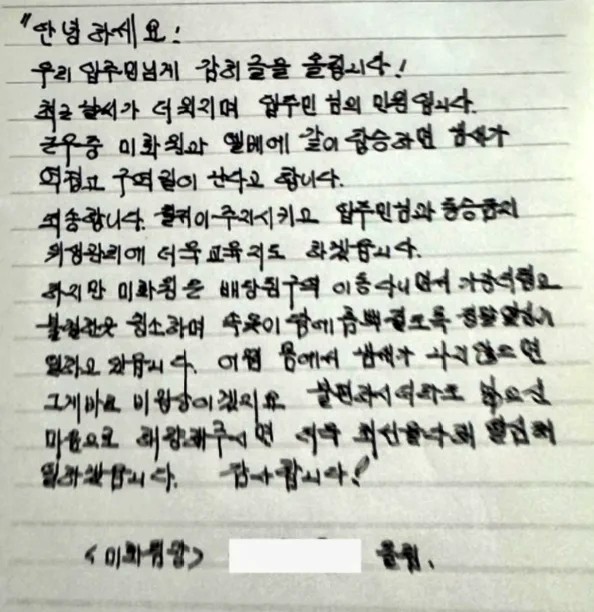 "안녕하세요!
우리 입주민님게 감히 글을 올립니다!
최근 날씨가 더워지며 입주민 님의 민원입니다.
근무중 미화원과 엘베에 같이 탑승하면 땀냄새가
역겹고 구역질이 난다고 합니다.
죄송합니다. 주지시키고 입주민님과 동승금지
위생관리에 더욱 교육 지도 하겠습니다.
하지만 미화원은 배당된구역 이동다니면서 가장더럽고
불결한곳 청소하며 속옷이 땀에 흠뻑젖도록 정말열심히
일하고 있습니다. 어찌 몸에서 땀냄새가 나지않으면
그게바로 비정상이겠지요 불편하시더라도 넓으신
마음으로 해량해주시면 더욱 최선을다해 열심히
일하겠습니다. 감사합니다!
<미화원장> 올림.